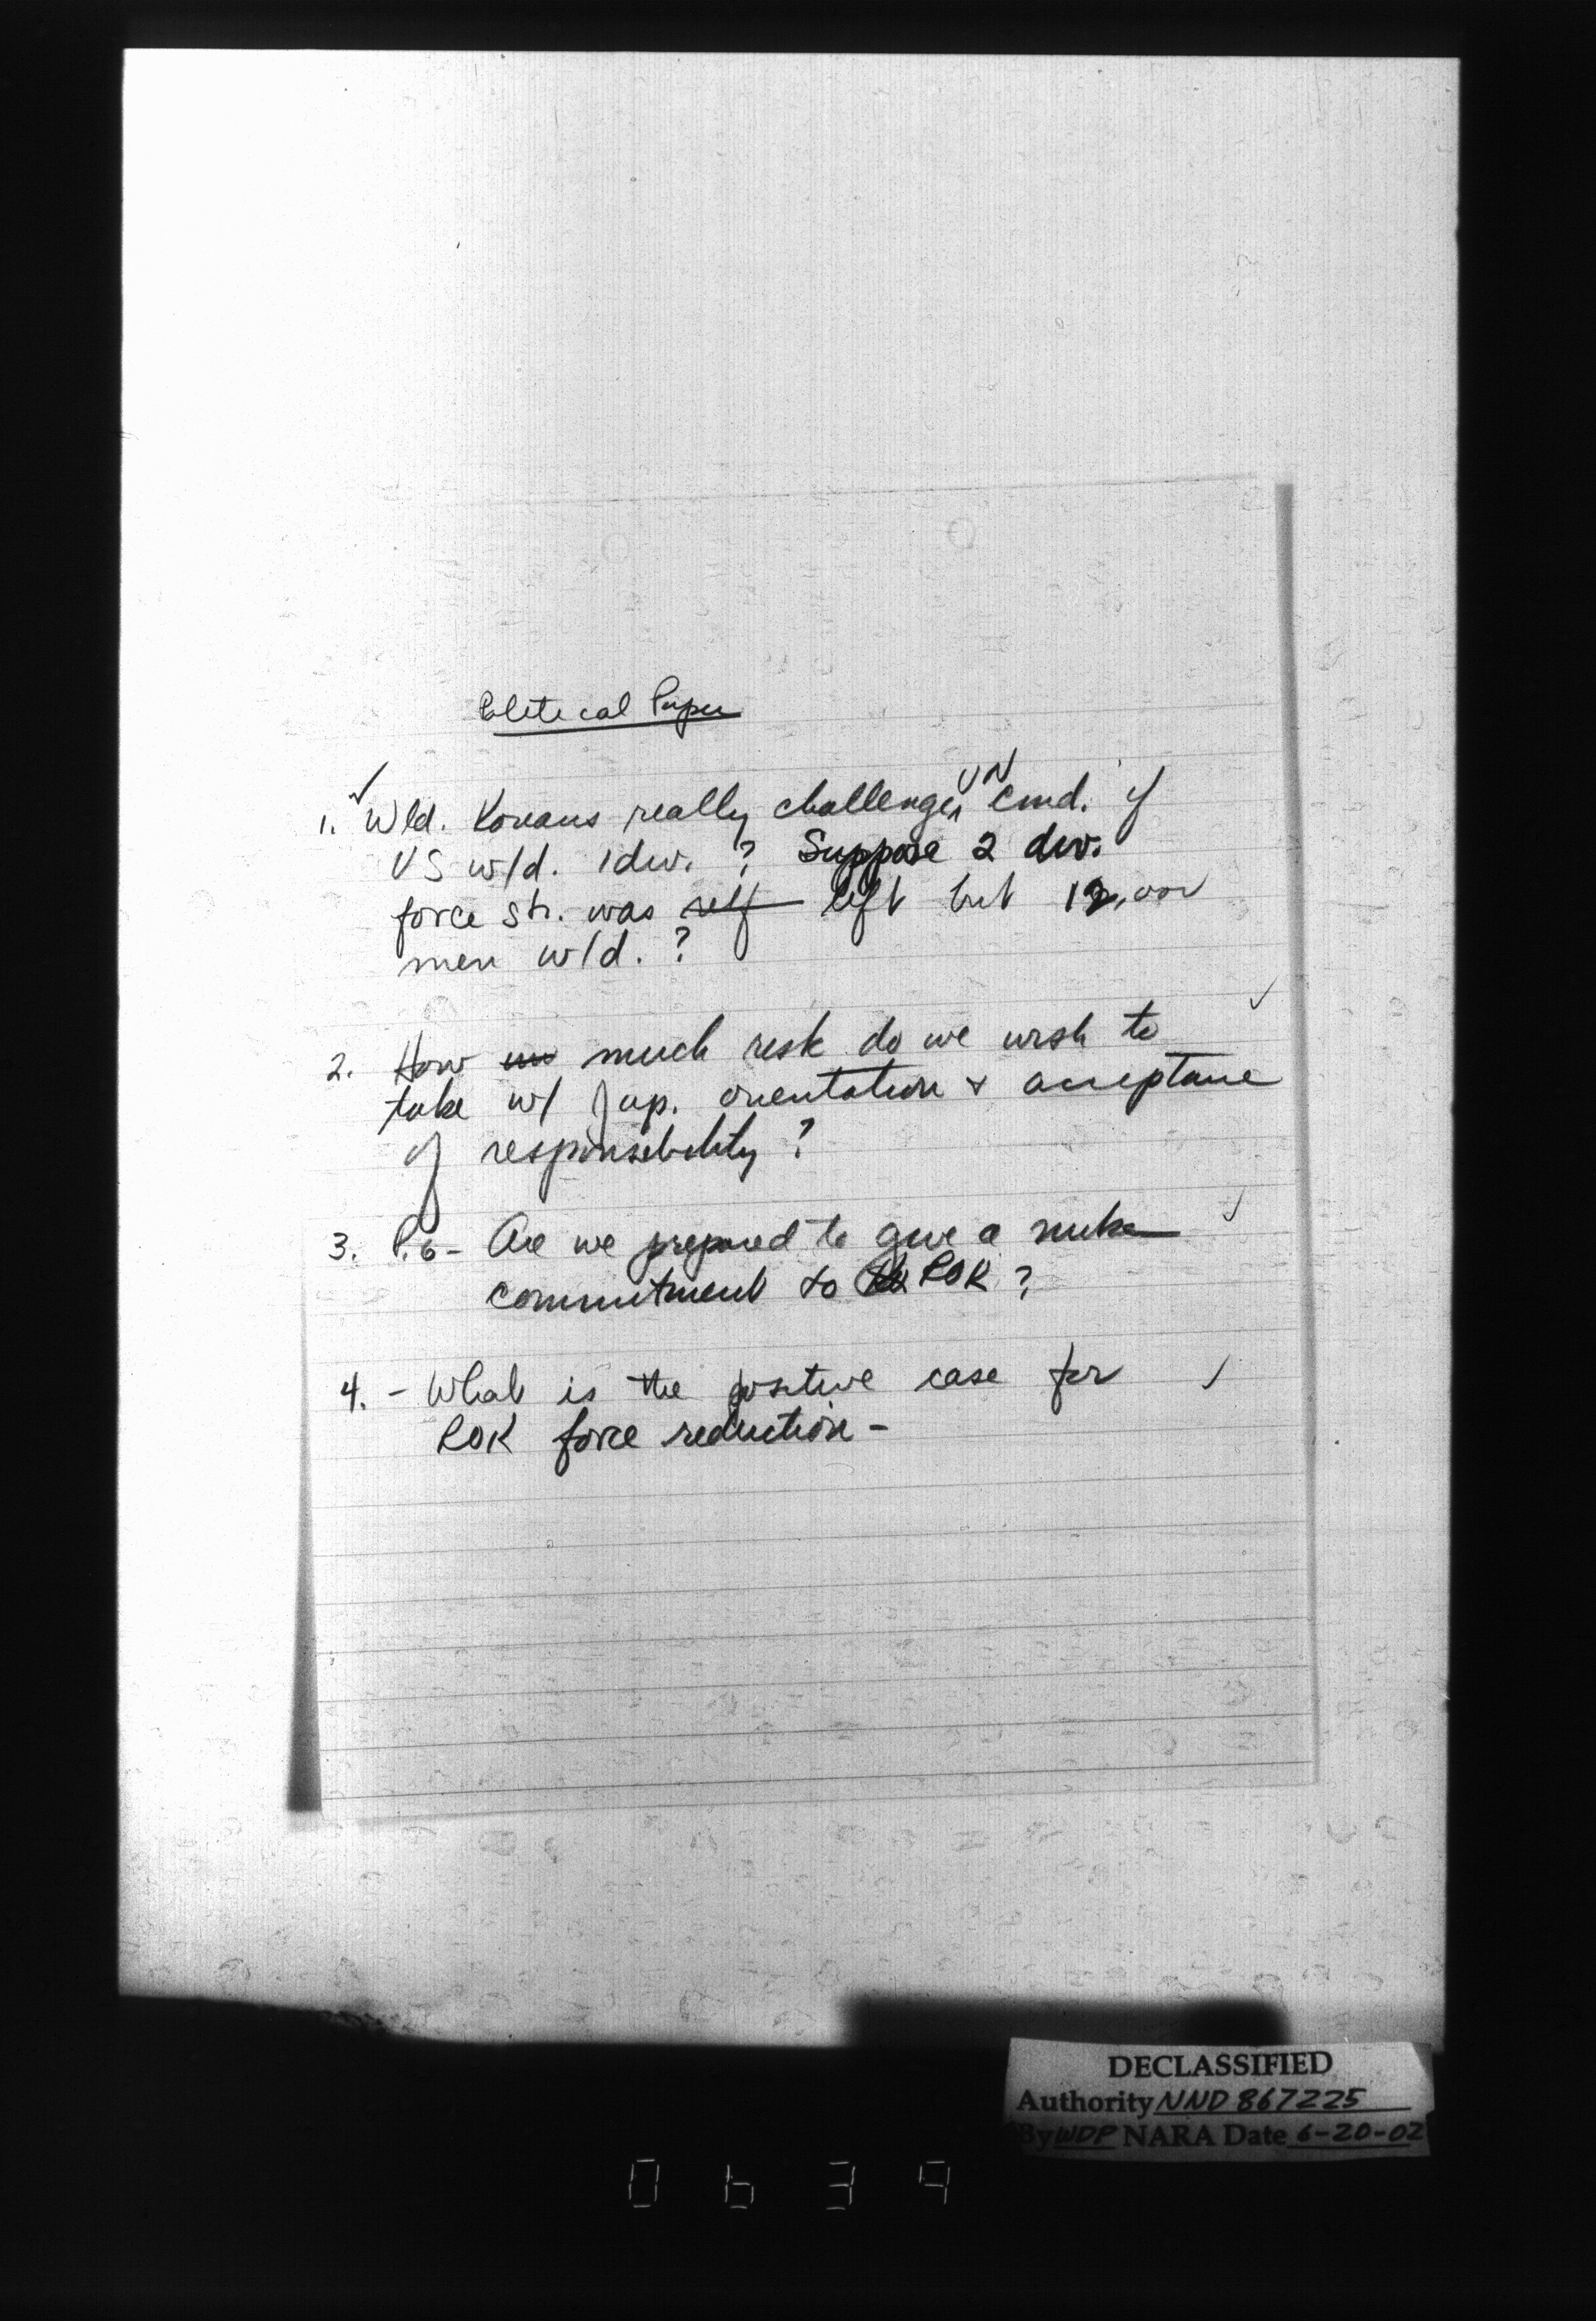 Political Paper
✓
1. Wld. Koreans really challenge UN Cmd. if
US w/d. 1 div. ? Suppose 2 div.
force str. was left but 12,000
men w/d. ?
2. How much risk do we wish to ✓
take w/ Jap. orientation & acceptance
of responsibility ?
3. P.6 - Are we prepared to give a nuke ✓
commitment to ROK ?
4. - What is the positive case for ✓
ROK force reduction -
DECLASSIFIED
Authority NND 867225
By WDP NARA Date 6-20-02
0639